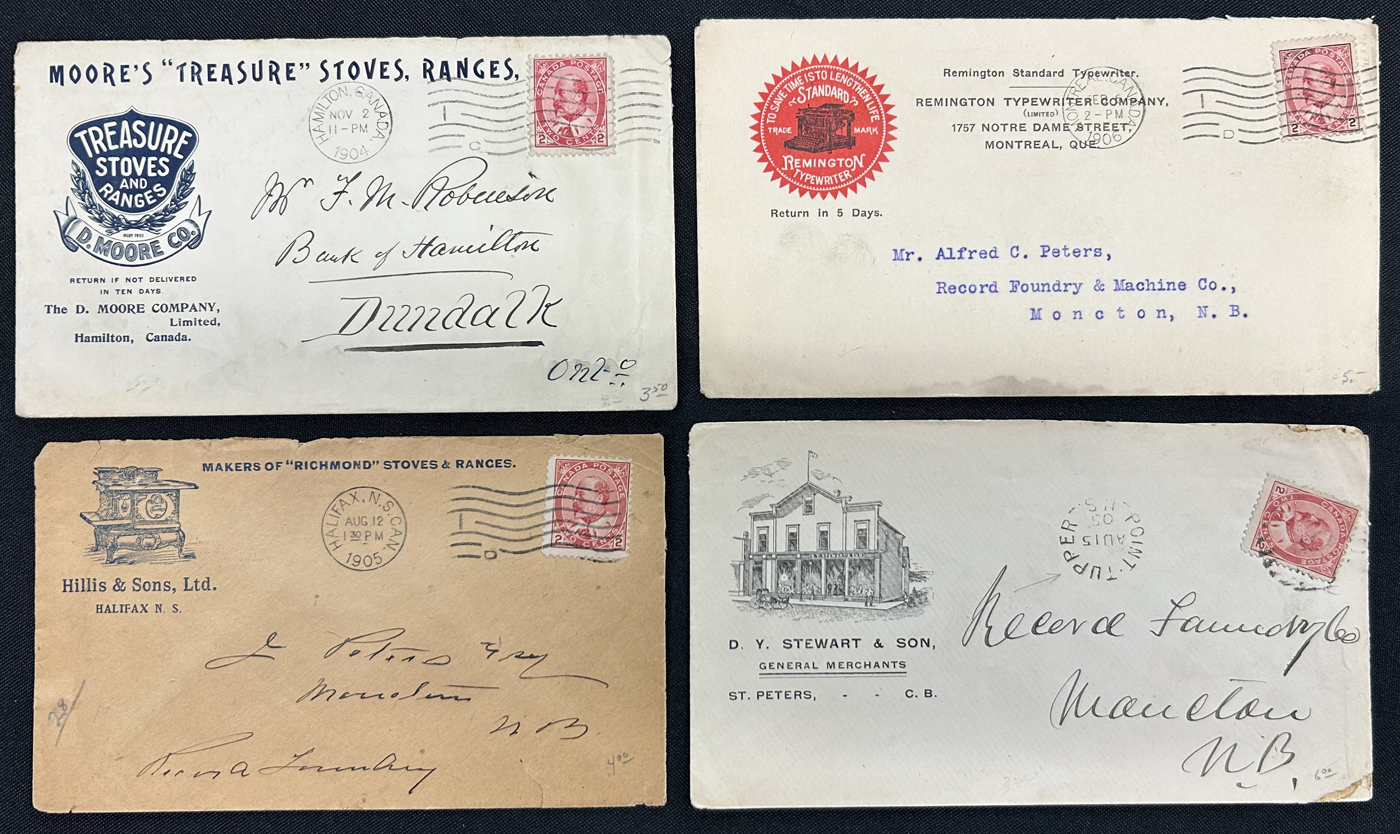 MOORE'S "TREASURE" STOVES, RANGES,
TREASURE
STOVES
AND
RANGES
D. MOORE CO.
RETURN IF NOT DELIVERED
IN TEN DAYS.
The D. MOORE COMPANY,
Limited,
Hamilton, Canada.
HAMILTON, CANADA
NOV 2
11-PM
1904
C
CANADA POSTAGE
2 TWO CENTS 2
Mr F. M. Robinson
Bank of Hamilton
Dundalk
Ont-o
3 50
TO SAVE TIME IS TO LENGTHEN LIFE
"STANDARD"
TRADE MARK
REMINGTON
TYPEWRITER
Return in 5 Days.
Remington Standard Typewriter.
REMINGTON TYPEWRITER COMPANY,
(LIMITED)
1757 NOTRE DAME STREET,
MONTREAL, QUE
MONTREAL, CANADA
FEB
2-PM
1906
D
CANADA POSTAGE
2 2
Mr. Alfred C. Peters,
Record Foundry & Machine Co.,
Moncton, N. B.
5.-
MAKERS OF "RICHMOND" STOVES & RANGES.
Hillis & Sons, Ltd.
HALIFAX N. S.
HALIFAX, N.S. CAN.
AUG 12
1 30 PM
1905
D
CANADA POSTAGE
2 TWO CENTS 2
J Peters Esq
Moncton
N B
Record Foundry
28
4 00
D. Y. STEWART & SON,
GENERAL MERCHANTS
ST. PETERS, - - C. B.
POINT TUPPER
AU 15
05
N.S.
CANADA POSTAGE
2 2
Record Foundry Co
Moncton
N.B.
6 00